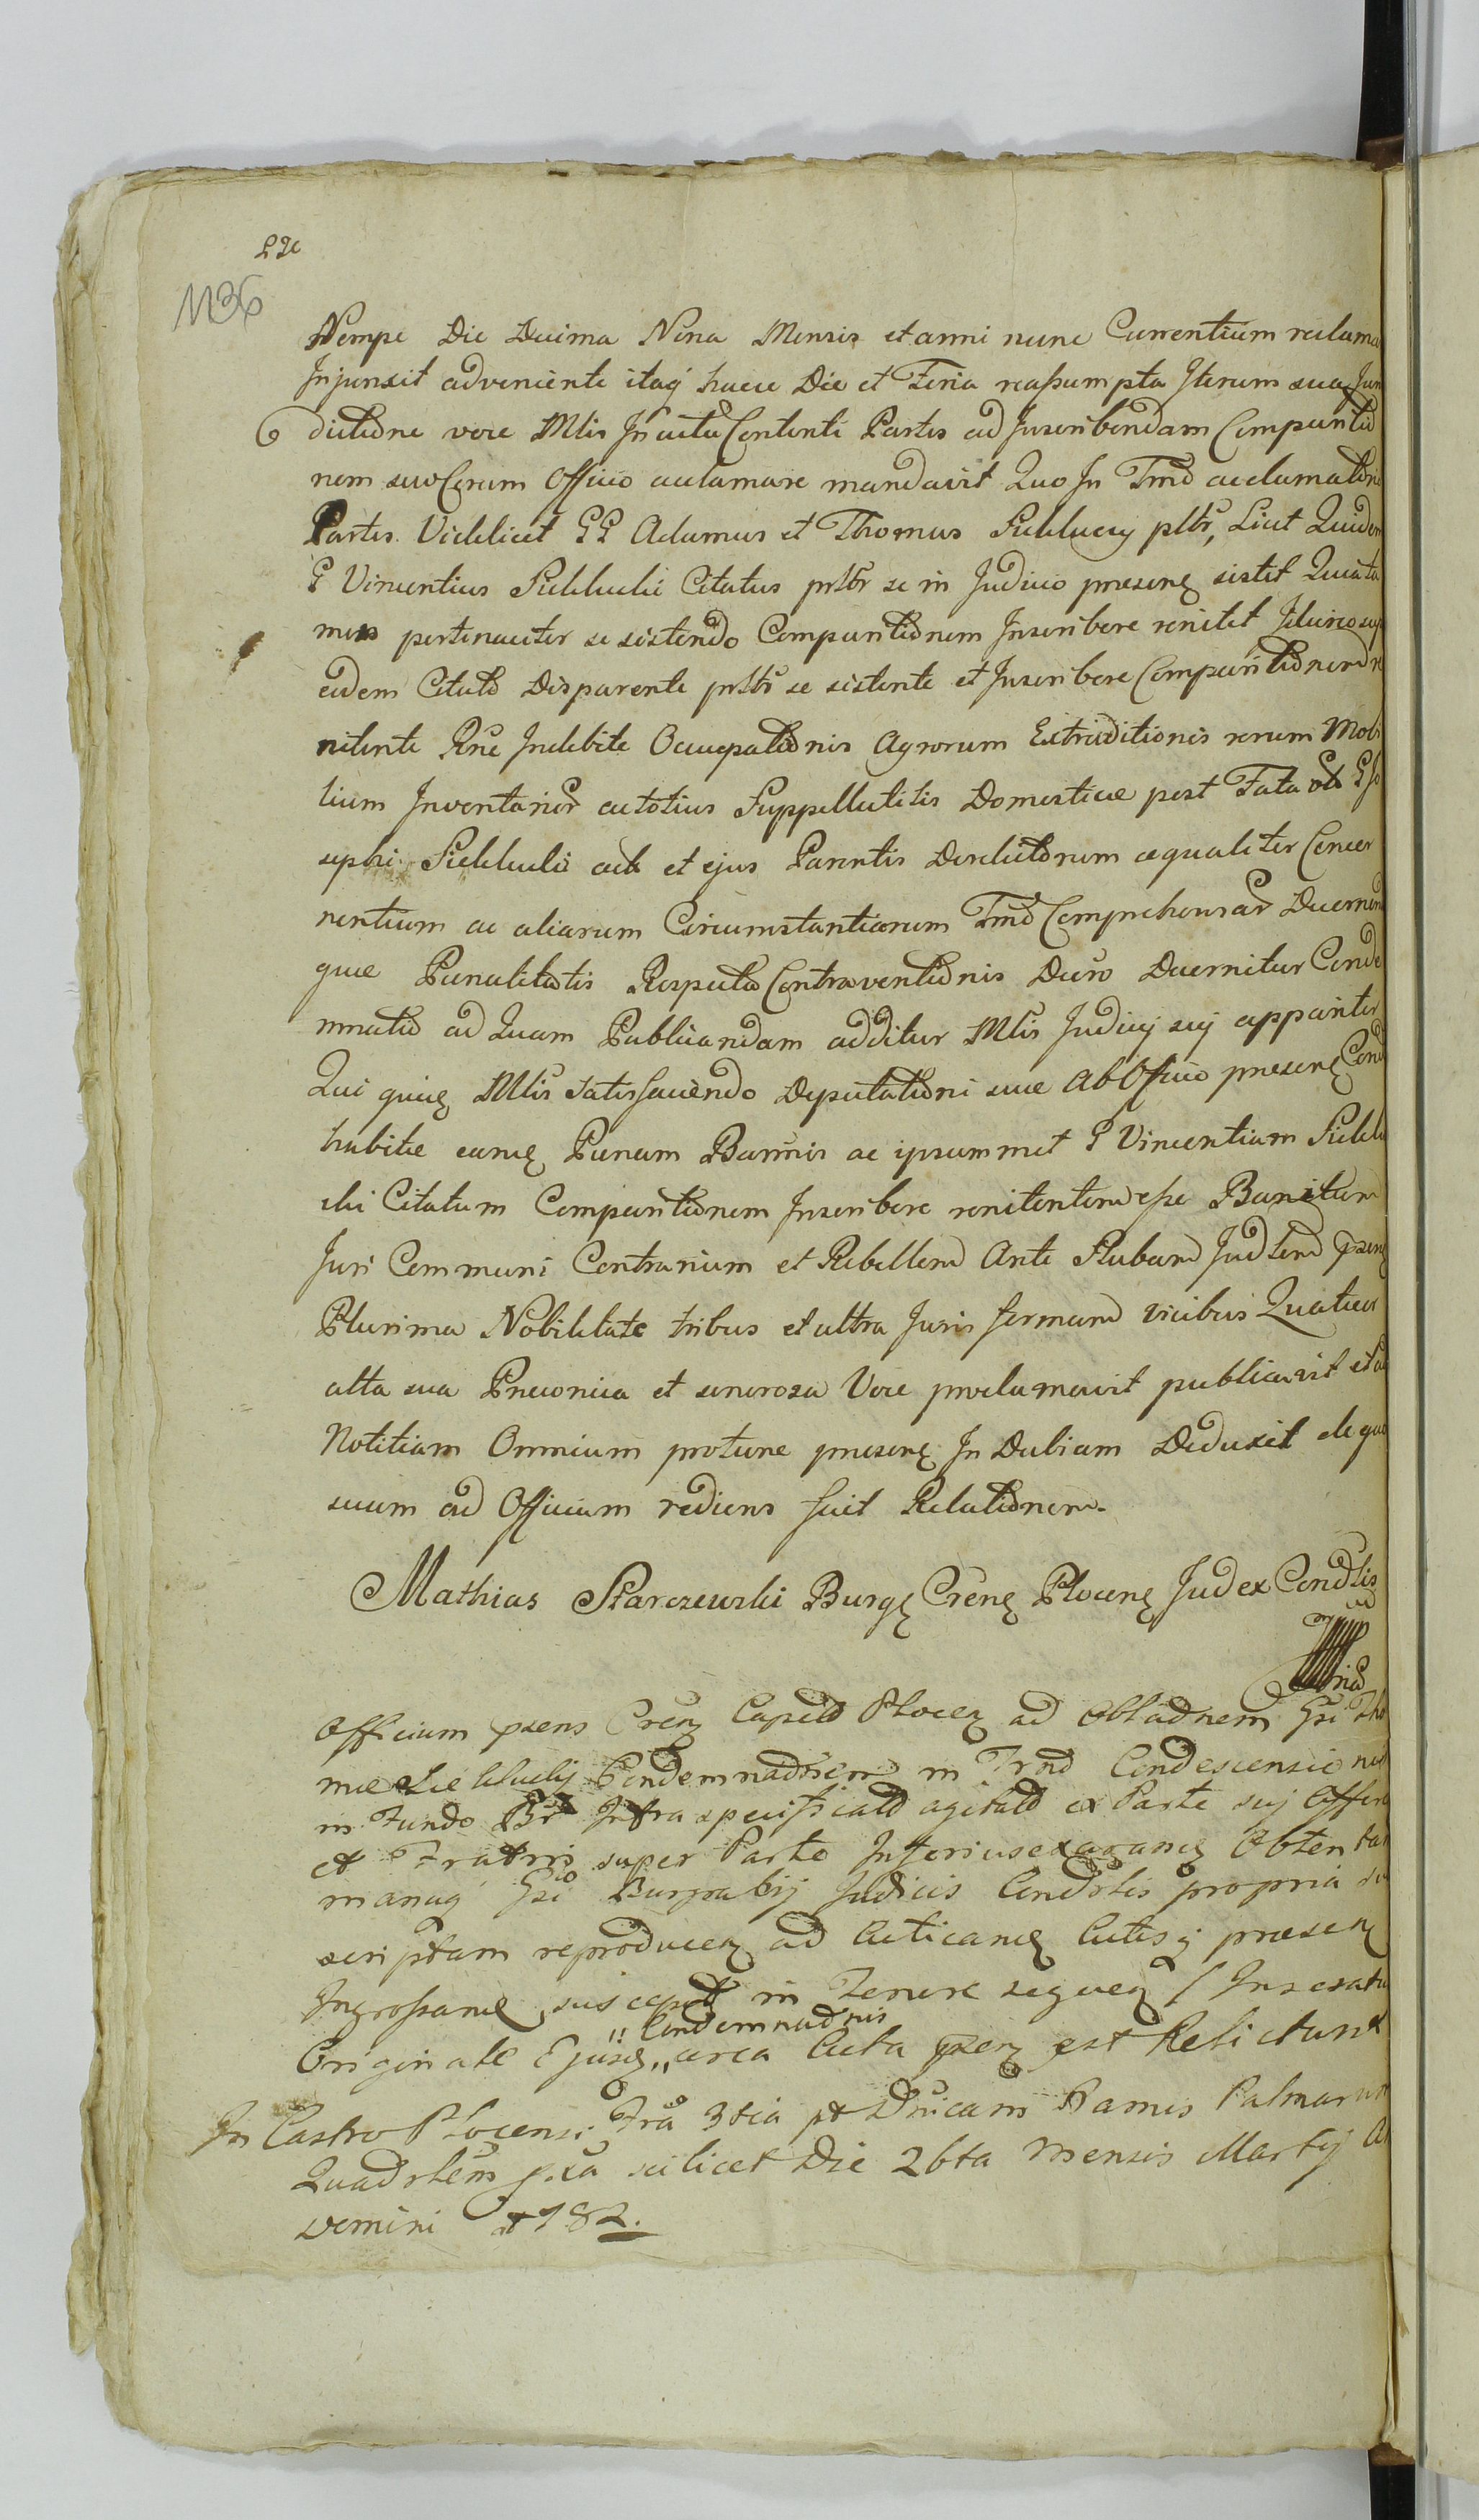 1136
Nempe Die Decima Nona Mensis et anni nunc Currentium reclama
Injunxit adveniente itaq haece Die et Feria reassumpta Iterum sua Juri
dictione voce Mlis Incitu Contenti Partes ad Inscribendam Comparitio
nem suo Coram Officio acclamare mandavit Quo In Tmd acclamatione
Partes Videlicet GG Adamus et Thomas Siekluccy pltr, Licet Quidem
G Vincentius Sieklucki Citatus prltr se in Judicio presenę sistit
men pertinaciter se sistendo Comparitionem Inscribere renitet Idcirco
eodem Citato Disparente prltr se sistente et Inscribere Comparitionem re
nitente Rne Indebite Occupationis Agrorum Extraditionis rerum Mobi
lium Inventarior ac totius Suppellectilis Domestice post Fata olt G Jo
sephi Sieklucki act et ejus Parentis Derelictorum aequaliter Concer
nentium ac aliarum Circumstantiarum Tmd Comprehensar Decernend
que Penalitatis Respectu Contraventionis Decro Decernitur Conde
mnatio ad Quam Publicandam additur Mlis Judicy sui apparitor
Qui quię Mlis Satisfaciendo Deputationi sue Ab Officio presenę Cond
habite eamę Penam Bannis ac ipsummet G Vincentium Siekl
cki Citatum Comparitionem Inscribere renitentem esse Banitum
Juri Communi Contrarium et Rebellem Ante Stubam Judlem pzenę
Plurima Nobilitate tribus et ultra Juris formam vicibus Quatuor
alta sua Preconica et sonorosa Voce proclamavit publicavit et ad
Notitiam Omnium protunc presenę In Dubiam Deduxit de quo
suum ad Officium rediens fecit Relationem.
Mathias Starczewski Burgę Crenę Plocenę Judex Condlis
mp
Officium pzens Crenę Capeld Plocenę ad Obladnem Gsi Tho
mae Siekluckij Condemnadnem in Trnd Condescensionis
in Fundo Infra specificato agitato ex Parte sui Offere
et Fratrri super Parte Inferius exaranę Obten
manuq Gsi Burgrabij Judicis Condlis propria su
scriptam reproducenę ad Acticanę Actisq praesenę
Ingrossanę suscepit in Tenore sequenę / Inserat
" Condemnadnis
Originale Ejusę " circa Acta pzenę est Relictum
In Castro Plocensi Fria 3tia pt Dnicam Ramis Palmarum
Quadrlem pxa scilicet Die 26ta Mensis Martij A
Domini 1782.